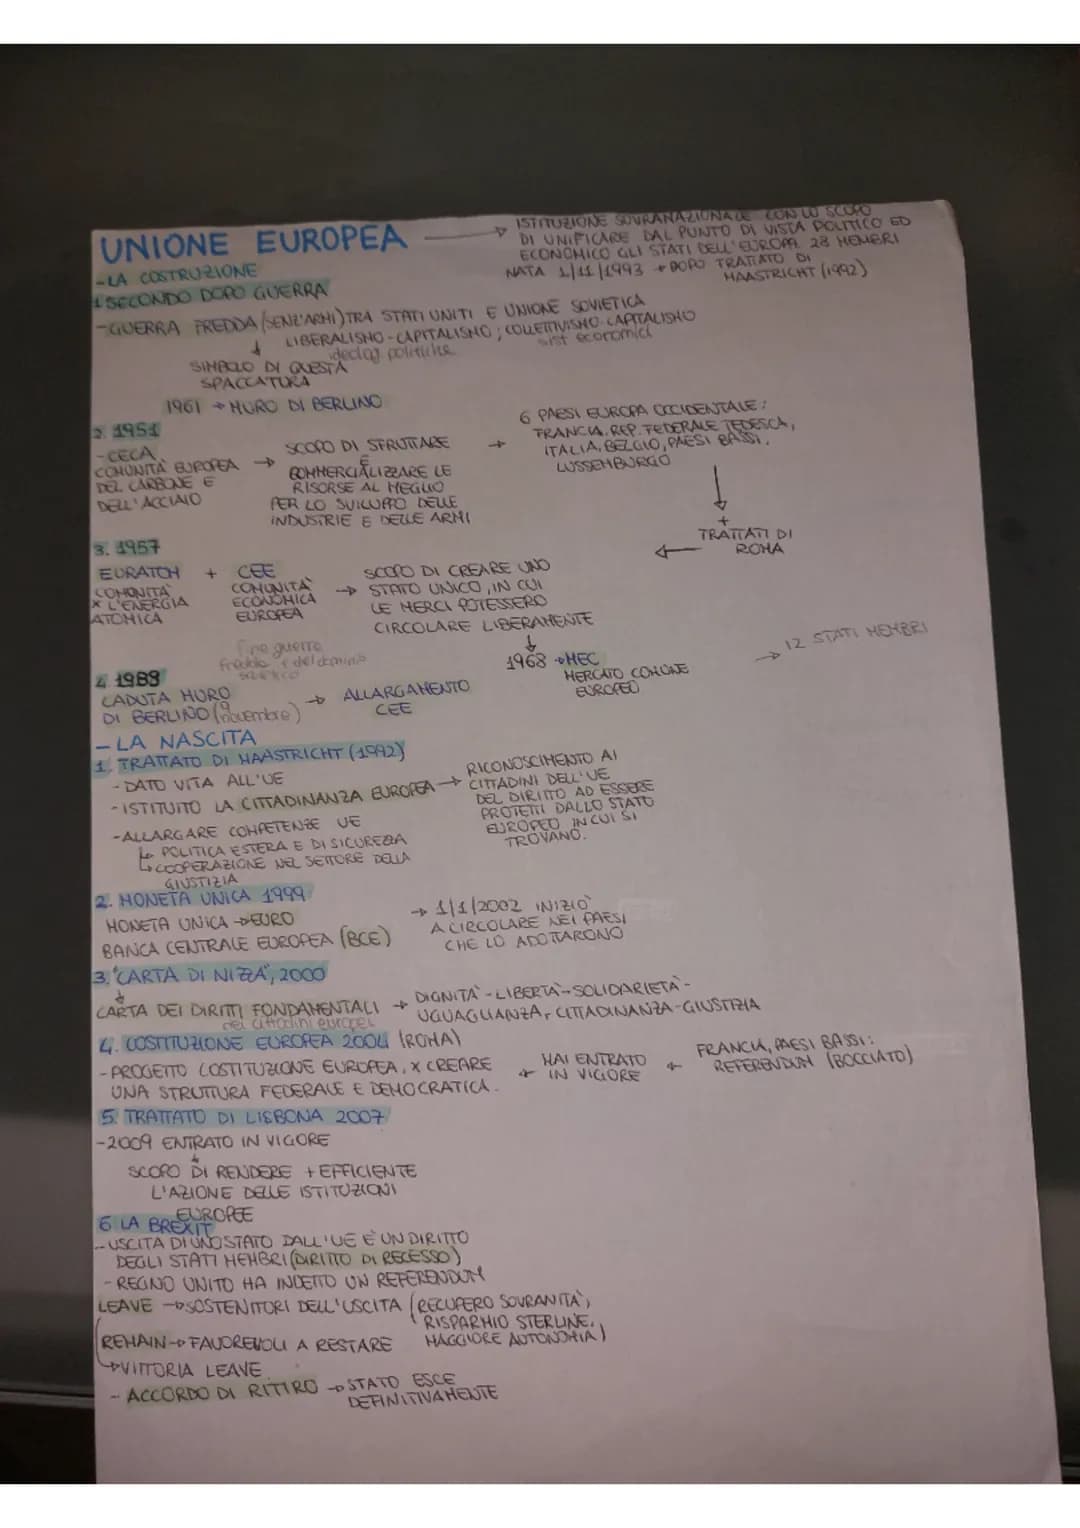 UNIONE EUROPEA → ISTITUZIONE SOVRANAZIONALE CON LO SCOPO
DI UNIFICARE DAL PUNTO DI VISTA POLITICO ED
ECONOMICO GLI STATI DELL'EUROPA 28 MEMBRI
NATA 1/11/1993 → DOPO TRATTATO DI
MAASTRICHT (1992)
- LA COSTRUZIONE
1 SECONDO DOPO GUERRA
- GUERRA FREDDA (SENZ'ARMI) TRA STATI UNITI E UNIONE SOVIETICA
LIBERALISMO - CAPITALISMO ; COLLETTIVISMO - CAPITALISMO
ideolog. politiche
sist economici
↓
SIMBOLO DI QUESTA
SPACCATURA
1961 → MURO DI BERLINO
2. 1951
- CECA
COMUNITÀ EUROPEA →
DEL CARBONE E
DELL'ACCIAIO
SCOPO DI SFRUTTARE →
E
COMMERCIALIZZARE LE
RISORSE AL MEGLIO
PER LO SVILUPPO DELLE
INDUSTRIE E DELLE ARMI
6 PAESI EUROPA OCCIDENTALE:
FRANCIA, REP. FEDERALE TEDESCA,
ITALIA, BELGIO, PAESI BASSI,
LUSSEMBURGO
↓
+
← TRATTATI DI
ROMA
3. 1957
EURATOM + CEE
COMUNITÀ
X L'ENERGIA
ATOMICA
COMUNITÀ →
ECONOMICA
EUROPEA
SCOPO DI CREARE UNO
STATO UNICO, IN CUI
LE MERCI POTESSERO
CIRCOLARE LIBERAMENTE
↓
1968 → MEC
MERCATO COMUNE
EUROPEO
→ 12 STATI MEMBRI
Fine guerra
fredda e del dominio
sovietico
4 1989
CADUTA MURO
DI BERLINO (9 novembre) → ALLARGAMENTO
CEE
- LA NASCITA
1. TRATTATO DI MAASTRICHT (1992)
- DATO VITA ALL'UE
- ISTITUITO LA CITTADINANZA EUROPEA →
RICONOSCIMENTO AI
CITTADINI DELL'UE
DEL DIRITTO AD ESSERE
PROTETTI DALLO STATO
EUROPEO IN CUI SI
TROVANO.
- ALLARGARE COMPETENZE UE
↳ POLITICA ESTERA E DI SICUREZZA
↳ COOPERAZIONE NEL SETTORE DELLA
GIUSTIZIA
2. MONETA UNICA 1999
MONETA UNICA → EURO
BANCA CENTRALE EUROPEA (BCE)
→ 1/1/2002 INIZIÒ
A CIRCOLARE NEI PAESI
CHE LO ADOTTARONO
3. "CARTA DI NIZZA", 2000
↓
CARTA DEI DIRITTI FONDAMENTALI → DIGNITÀ - LIBERTÀ - SOLIDARIETÀ -
UGUAGLIANZA, CITTADINANZA - GIUSTIZIA
dei cittadini europei
4. COSTITUZIONE EUROPEA 2004 (ROMA)
- PROGETTO COSTITUZIONE EUROPEA, X CREARE
UNA STRUTTURA FEDERALE E DEMOCRATICA.
← MAI ENTRATO
IN VIGORE
← FRANCIA, PAESI BASSI:
REFERENDUM (BOCCIATO)
5. TRATTATO DI LISBONA 2007
- 2009 ENTRATO IN VIGORE
↓
SCOPO DI RENDERE + EFFICIENTE
L'AZIONE DELLE ISTITUZIONI
EUROPEE
6 LA BREXIT
- USCITA DI UNO STATO DALL'UE È UN DIRITTO
DEGLI STATI MEMBRI (DIRITTO DI RECESSO)
- REGNO UNITO HA INDETTO UN REFERENDUM
LEAVE → SOSTENITORI DELL'USCITA (RECUPERO SOVRANITÀ,
RISPARMIO STERLINE,
MAGGIORE AUTONOMIA)
REMAIN → FAVOREVOLI A RESTARE
↳ VITTORIA LEAVE
- ACCORDO DI RITIRO → STATO ESCE
DEFINITIVAMENTE